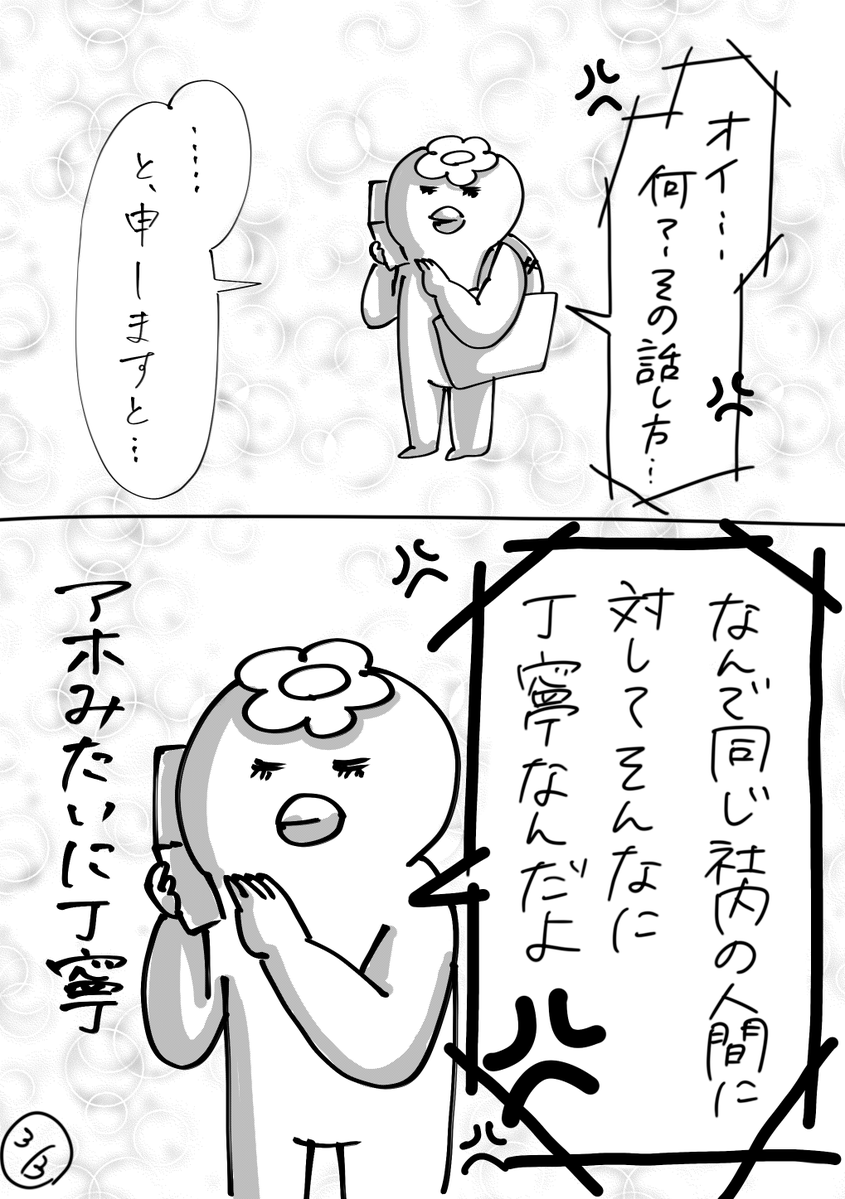 オイ…
何?その話し方…
……
と、申しますと…
なんで同じ社内の人間に
対してそんなに
丁寧なんだよ
アホみたいに丁寧
3/3